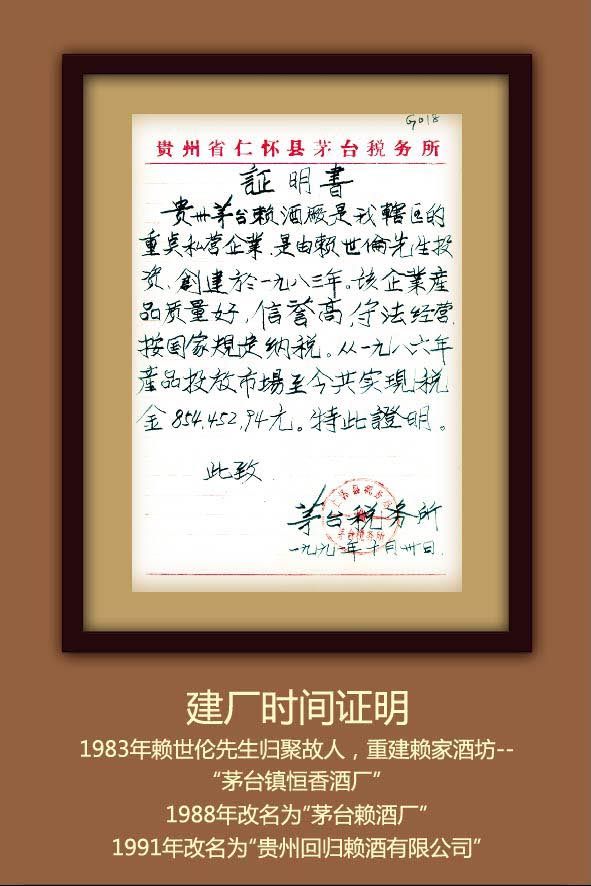 G018
貴州省仁怀县茅台税务所
証明書
貴州茅台赖酒厰是我辖区的
重点私营企業.是由赖世倫先生投
资、創建於一九八三年。该企業産
品质量好,信誉高,守法经营,
按国家規定纳税。从一九八六年
産品投放市場至今共实現税
金854,452,94元。特此證明。
此致
茅台税务所
一九九一年十月卅日.
仁怀县税务局
茅台税务所
建厂时间证明
1983年赖世伦先生归聚故人，重建赖家酒坊--
“茅台镇恒香酒厂”
1988年改名为“茅台赖酒厂”
1991年改名为“贵州回归赖酒有限公司”